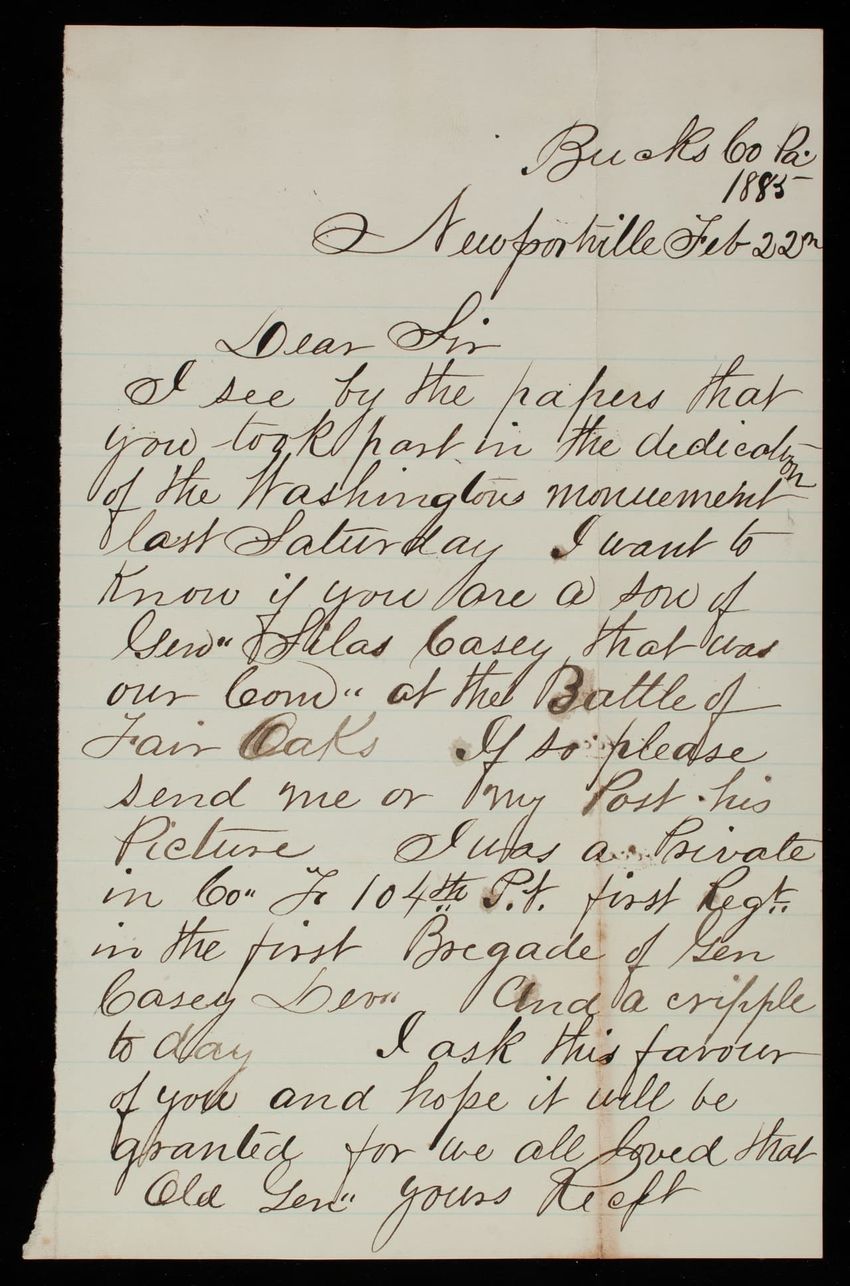 Bucks Co Pa.
1885
Newportville Feb 22n
Dear Sir
I see by the papers that
you took part in the dedication
of the Washingtons monuement
last Saturday I want to
Know if you are a son of
Gen" Silas Casey that was
our Com" at the Battle of
Fair Oaks If so please
send me or my Post his
Picture I was a Private
in Co" F 104th P.V. first Regt"
in the first Bregade of Gen
Casey Dev" And a cripple
to day I ask this favour
of you and hope it will be
granted for we all loved that
Old Gen" yours Recft